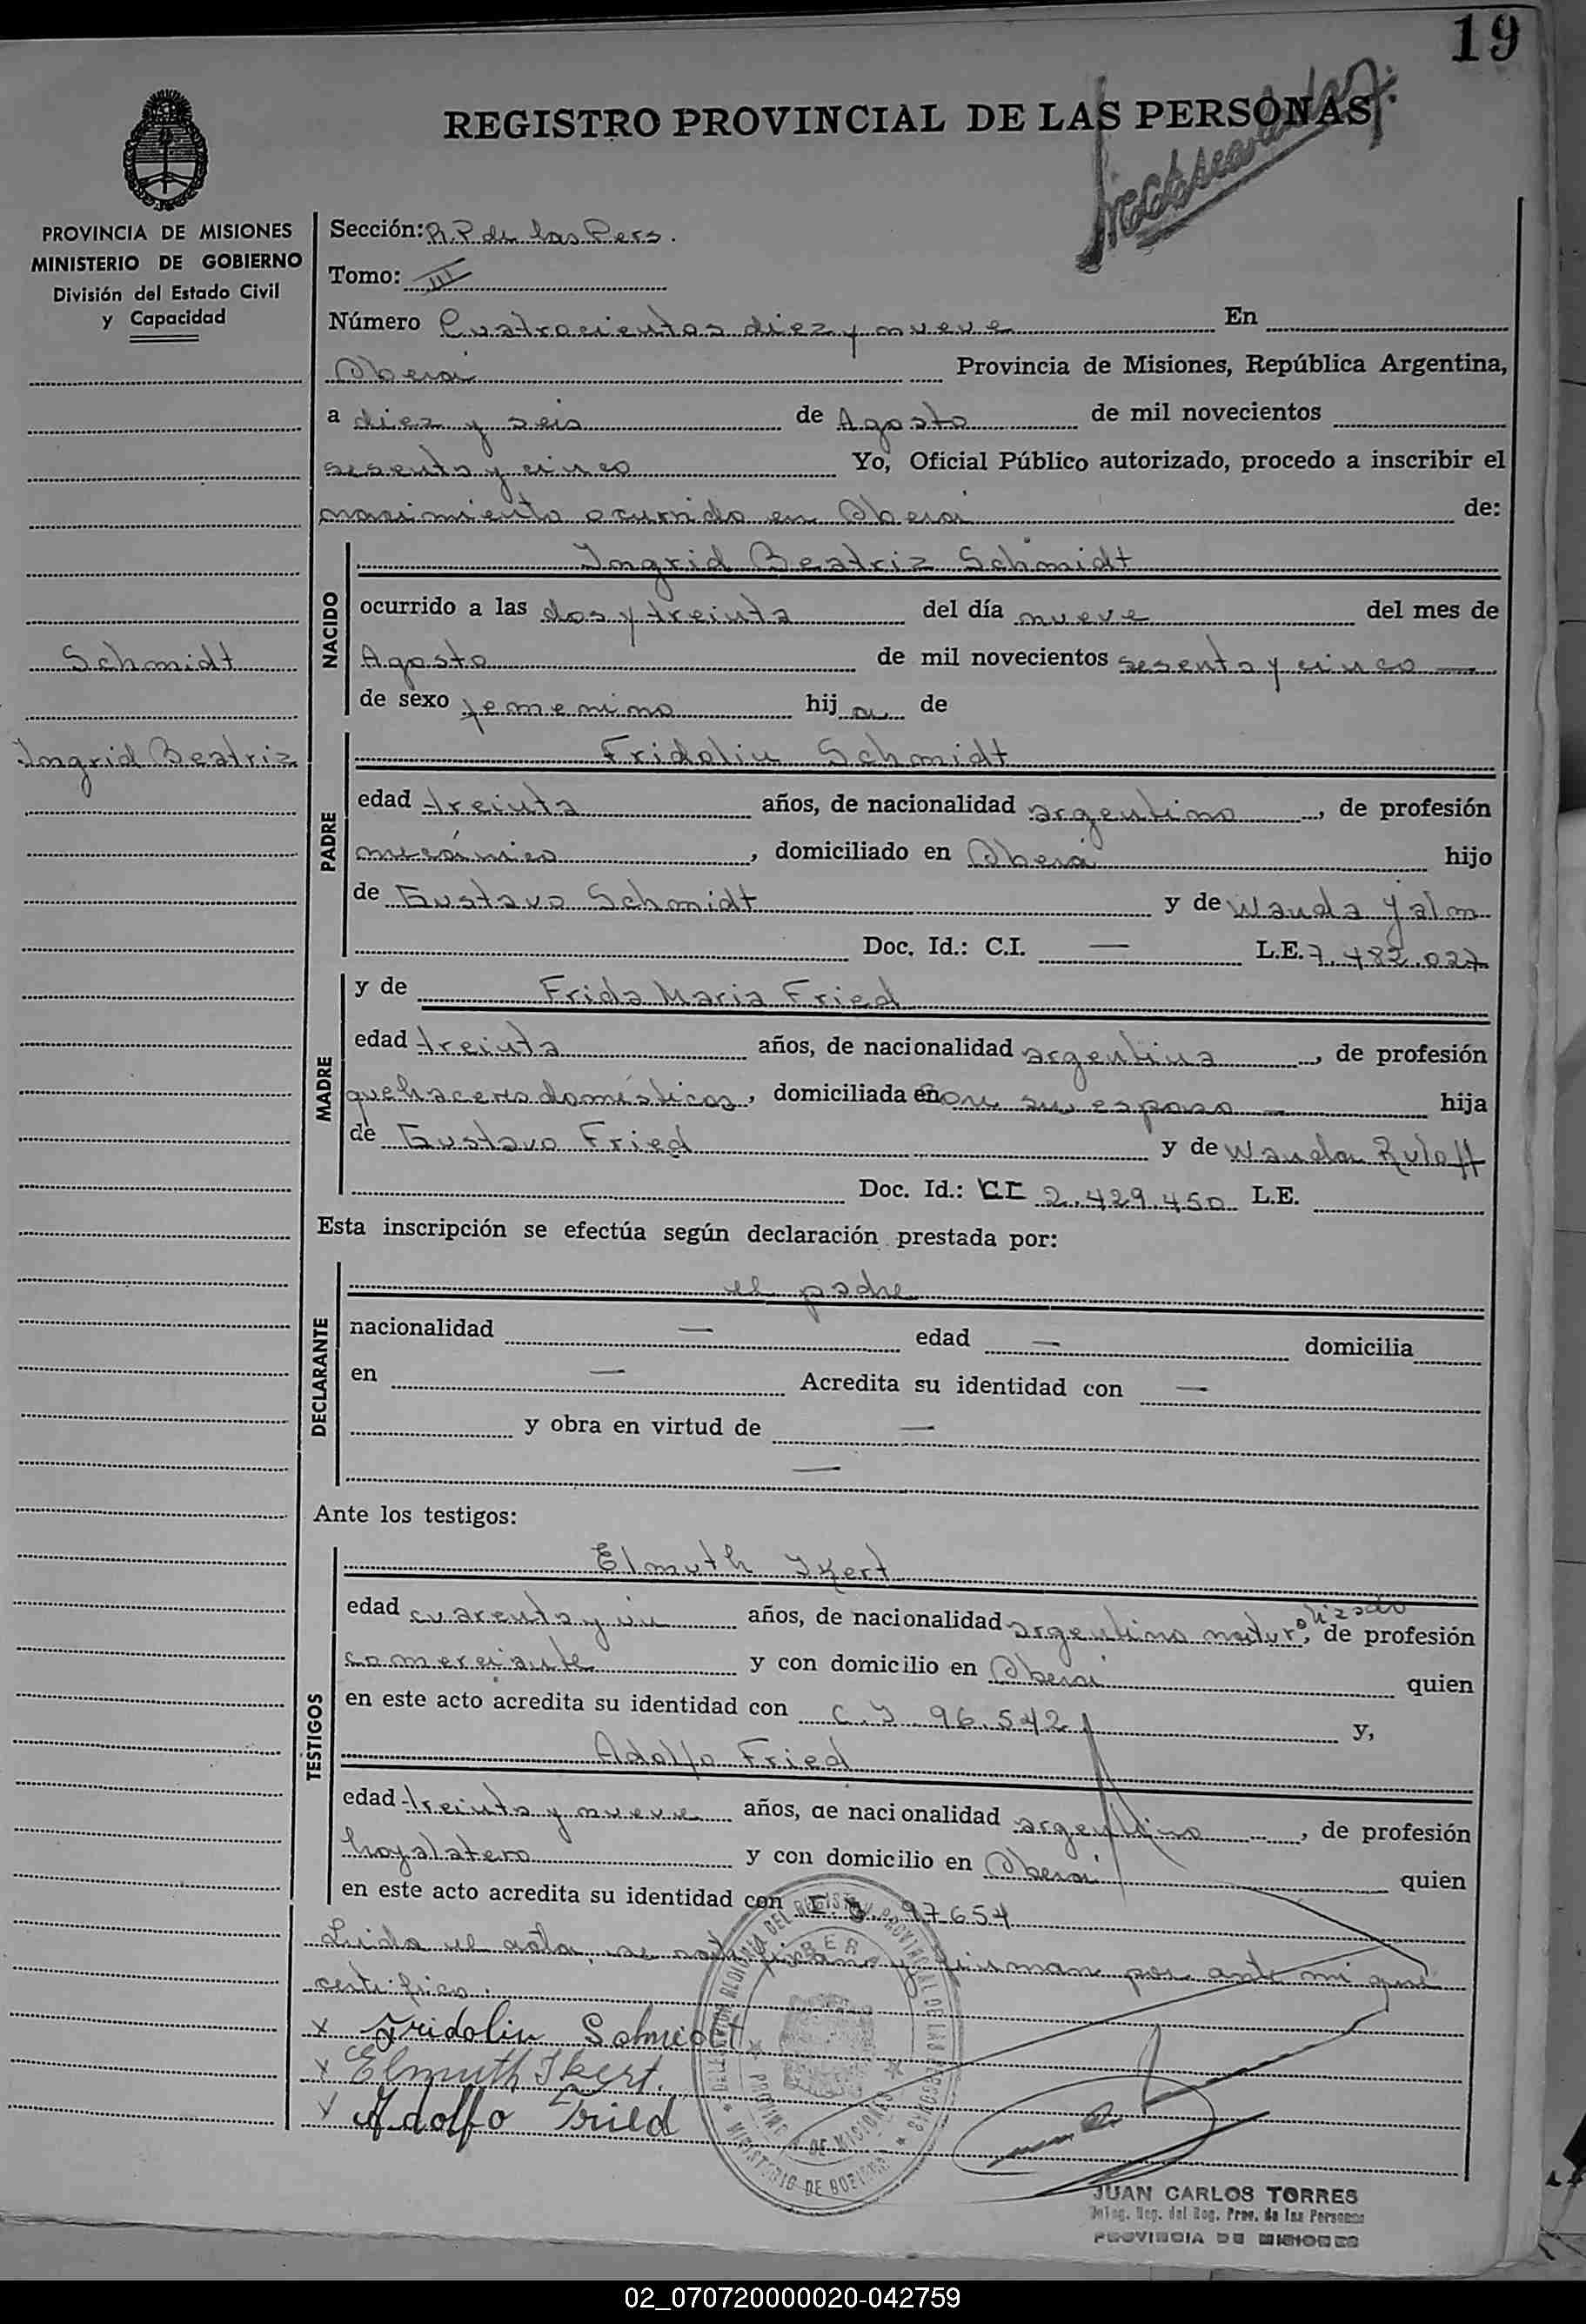 19
REGISTRO PROVINCIAL DE LAS PERSONAS
PROVINCIA DE MISIONES
MINISTERIO DE GOBIERNO
División del Estado Civil
y Capacidad
Schmidt
Ingrid Beatriz
Sección: R.P. de las Pers.
Tomo: III
Número Cuatrocientos diez y nueve En
Oberá Provincia de Misiones, República Argentina,
a diez y seis de Agosto de mil novecientos
sesenta y cinco Yo, Oficial Público autorizado, procedo a inscribir el
nacimiento ocurrido en Oberá de:
NACIDO
Ingrid Beatriz Schmidt
ocurrido a las dos y treinta del día nueve del mes de
Agosto de mil novecientos sesenta y cinco —
de sexo femenino hija de
PADRE
Fridolin Schmidt
edad treinta años, de nacionalidad argentino, de profesión
mecánico, domiciliado en Oberá hijo
de Gustavo Schmidt y de Wanda Jalm
Doc. Id.: C.I. — L.E. 7.482.027
MADRE
y de Frida Maria Fried
edad treinta años, de nacionalidad argentina, de profesión
quehaceres domésticos, domiciliada con su esposo — hija
de Gustavo Fried y de Wanda Ruloff
Doc. Id.: CI 2.429.450 L.E.
Esta inscripción se efectúa según declaración prestada por:
DECLARANTE
el padre
nacionalidad — edad — domicilia
en — Acredita su identidad con —
y obra en virtud de —
—
Ante los testigos:
TESTIGOS
Elmuth Ikert
edad cuarenta y un años, de nacionalidad argentino naturalizado, de profesión
comerciante y con domicilio en Oberá quien
en este acto acredita su identidad con C.I. 96.542 y,
Adolfo Fried
edad treinta y nueve años, de nacionalidad argentino, de profesión
hojalatero y con domicilio en Oberá quien
en este acto acredita su identidad con 97654
Leida el acta, se ratifican y firman por ante mi que
certifico.
x Fridolin Schmidt
x Elmuth Ikert.
x Adolfo Fried
DEL REGISTRO PROVINCIAL DE LAS PERSONAS
OBERA
PROVINCIA DE MISIONES
MINISTERIO DE GOBIERNO
JUAN CARLOS TORRES
Deleg. Rep. del Reg. Prov. de las Personas
PROVINCIA DE MISIONES
02_070720000020-042759